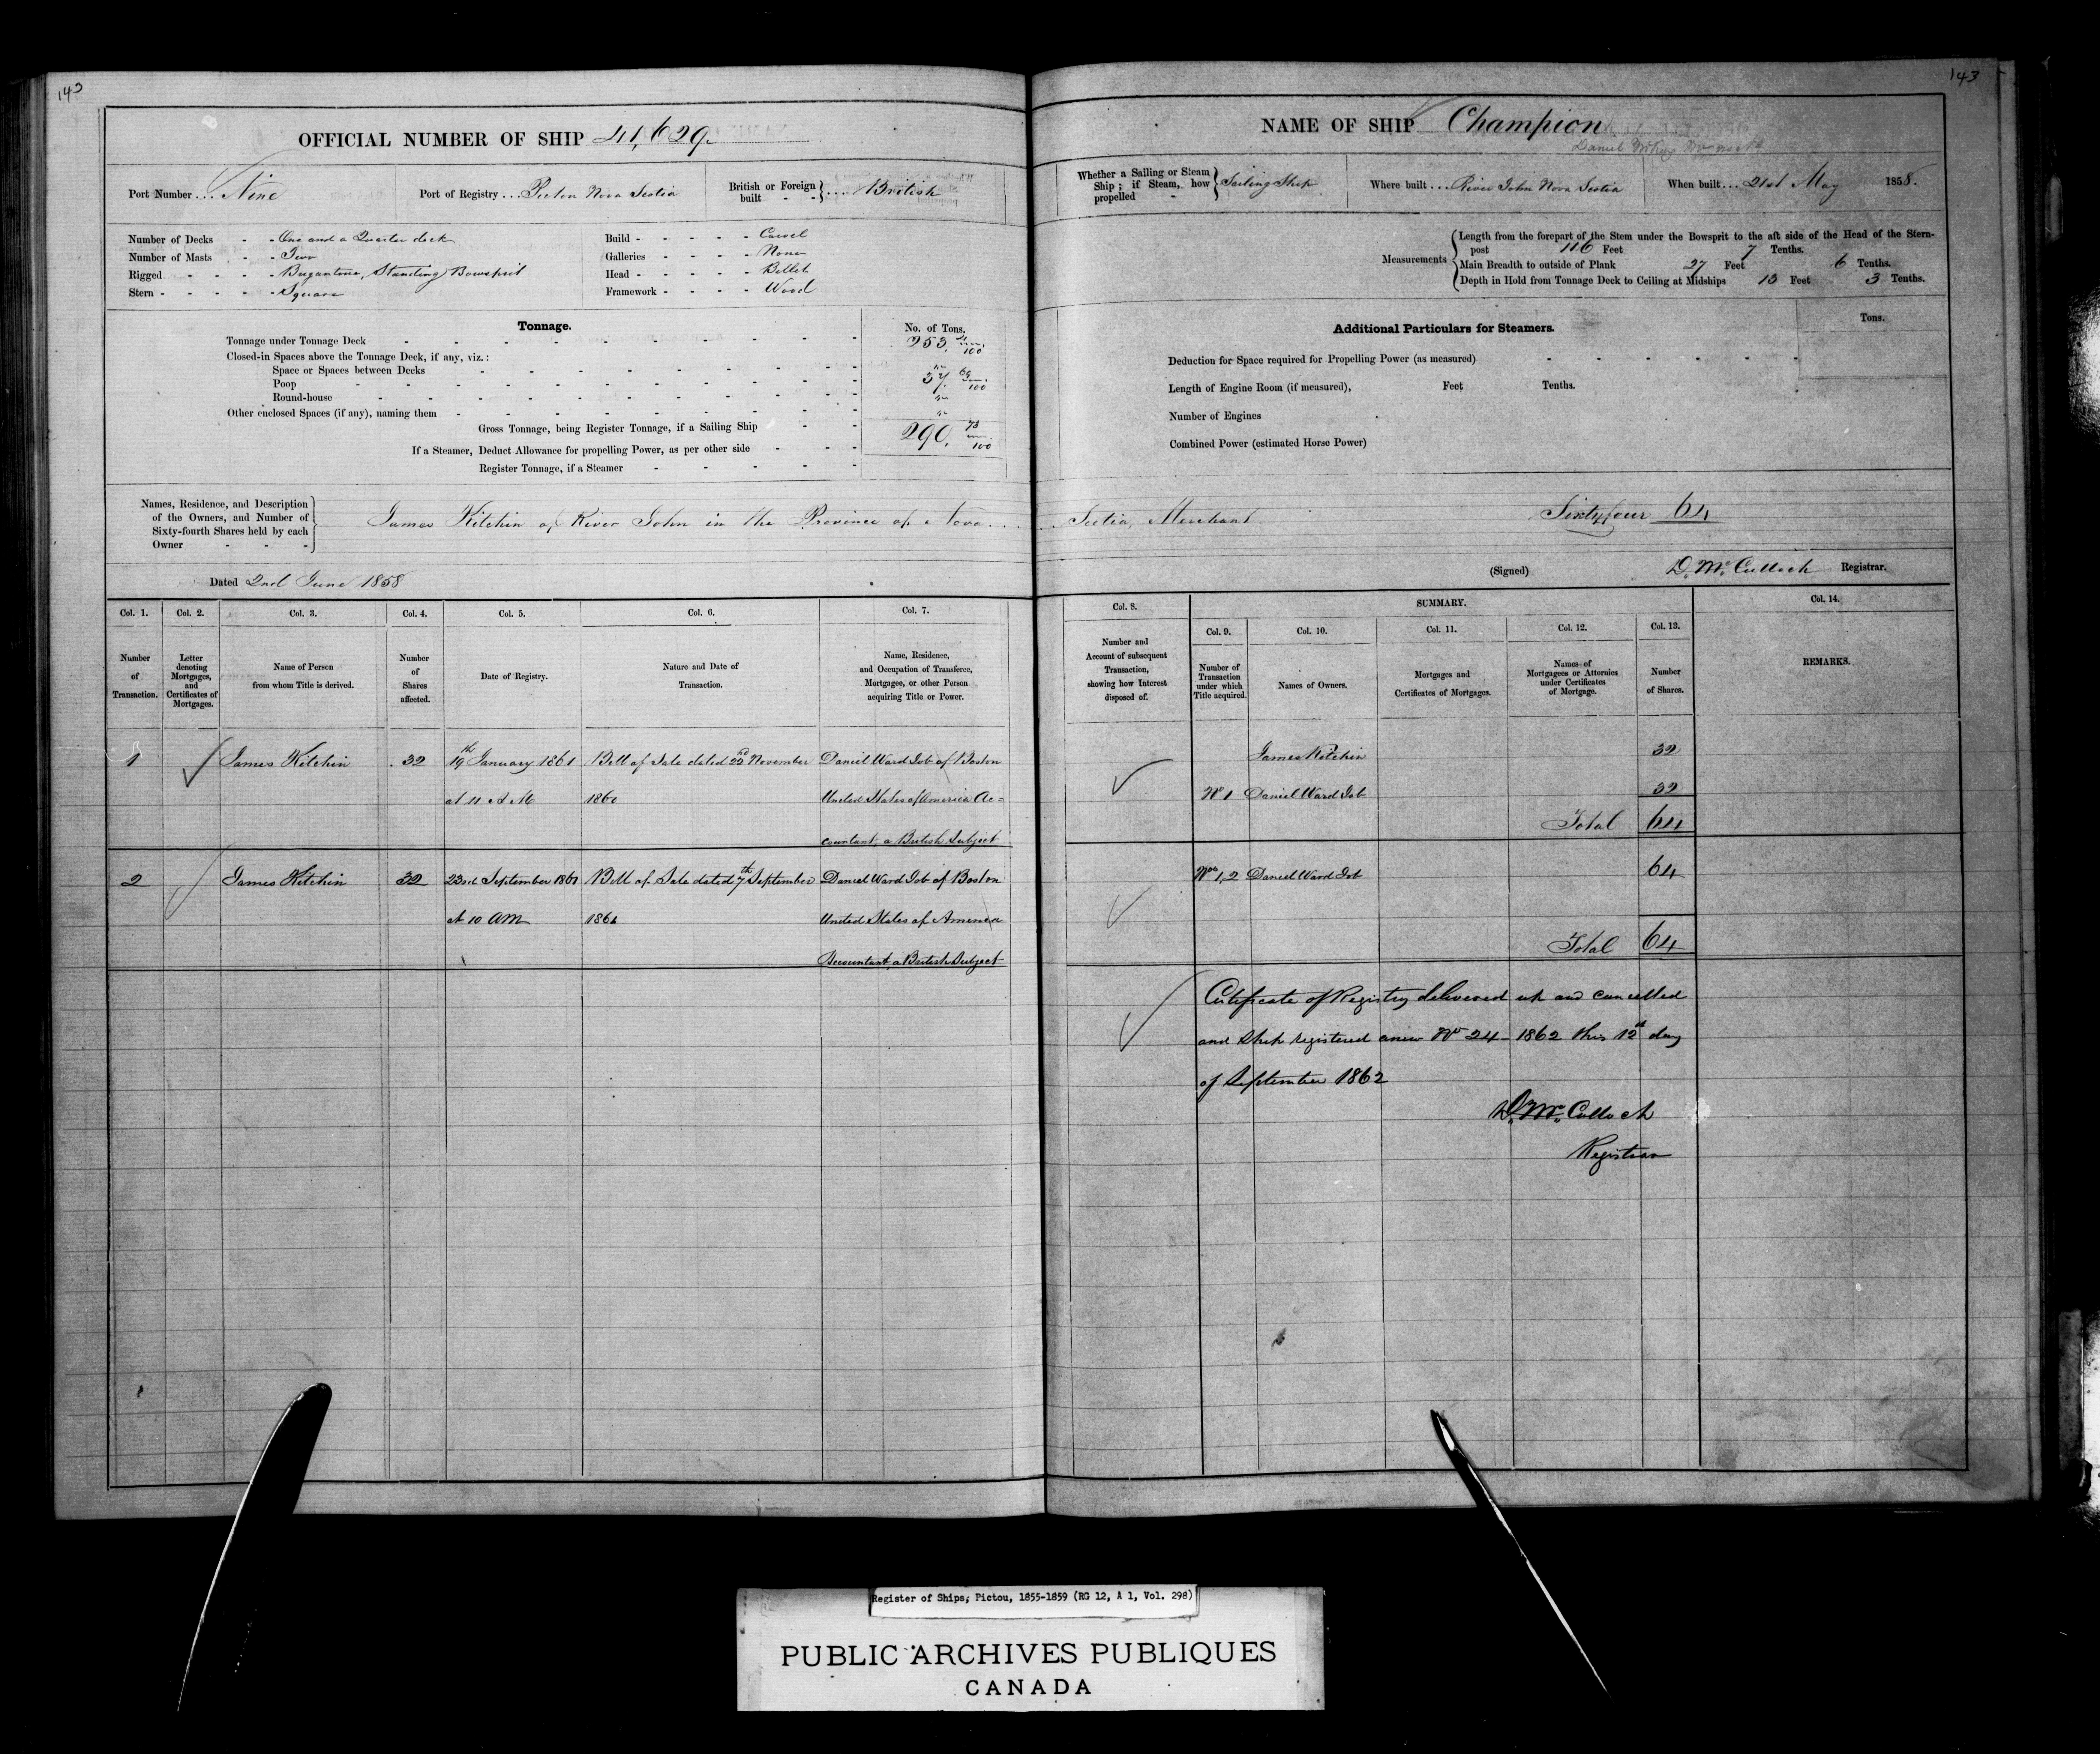 143
OFFICIAL NUMBER OF SHIP 41,629
Port Number ... Nine
Port of Registry ... Pictou Nova Scotia
British or Foreign built - - } .... British
Number of Decks - - One and a Quarter deck
Number of Masts - - Two
Rigged - - - - Brigantine, Standing Bowsprit
Stern - - - - - Square
Build - - - - - Carvel
Galleries - - - - None
Head - - - - - Billet
Framework - - - - Wood
Tonnage.
No. of Tons.
Tonnage under Tonnage Deck
253. 100
Closed-in Spaces above the Tonnage Deck, if any, viz.:
Space or Spaces between Decks
Poop
37. 69 100
Round-house
Other enclosed Spaces (if any), naming them
Gross Tonnage, being Register Tonnage, if a Sailing Ship
290. 73 100
If a Steamer, Deduct Allowance for propelling Power, as per other side
Register Tonnage, if a Steamer
Names, Residence, and Description of the Owners, and Number of Sixty-fourth Shares held by each Owner - - - }
James Kitchin of River John in the Province of Nova
Dated 2nd June 1858
Col. 1. Col. 2. Col. 3. Col. 4. Col. 5. Col. 6. Col. 7.
Number of Transaction.
Letter denoting Mortgages, and Certificates of Mortgages.
Name of Person from whom Title is derived.
Number of Shares affected.
Date of Registry.
Nature and Date of Transaction.
Name, Residence, and Occupation of Transferee, Mortgagee, or other Person acquiring Title or Power.
1 James Kitchin 32 19th January 1861 Bill of Sale dated 22nd November Daniel Ward Job of Boston
at 11 A M 1860 United States of America Ac=
countant, a British Subject
2 James Kitchin 32 23rd September 1861 Bill of Sale dated 7th September Daniel Ward Job of Boston
at 10 AM 1861 United States of America
Accountant, a British Subject
143
NAME OF SHIP Champion
Whether a Sailing or Steam Ship; if Steam, how propelled - } Sailing Ship
Where built ... River John Nova Scotia
When built ... 21st May 1858.
Measurements
Length from the forepart of the Stem under the Bowsprit to the aft side of the Head of the Stern-
post 116 Feet 7 Tenths.
Main Breadth to outside of Plank 27 Feet 6 Tenths.
Depth in Hold from Tonnage Deck to Ceiling at Midships 13 Feet 3 Tenths.
Additional Particulars for Steamers.
Tons.
Deduction for Space required for Propelling Power (as measured)
Length of Engine Room (if measured), Feet Tenths.
Number of Engines
Combined Power (estimated Horse Power)
Scotia, Merchant Sixty four 64
(Signed) D. McCulloch Registrar.
Col. 8.
SUMMARY.
Col. 14.
Col. 9. Col. 10. Col. 11. Col. 12. Col. 13.
Number and Account of subsequent Transaction, showing how Interest disposed of.
Number of Transaction under which Title acquired.
Names of Owners.
Mortgages and Certificates of Mortgages.
Names of Mortgagees or Attornies under Certificates of Mortgage.
Number of Shares.
REMARKS.
James Kitchin 32
No 1 Daniel Ward Job 32
Total 64
Nos 1,2 Daniel Ward Job 64
Total 64
Certificate of Registry delivered up and cancelled
and Ship registered anew No 24 - 1862 this 12th day
of September 1862
D. McCulloch
Registrar
Register of Ships; Pictou, 1855-1859 (RG 12, A 1, Vol. 298)
PUBLIC ARCHIVES PUBLIQUES
CANADA